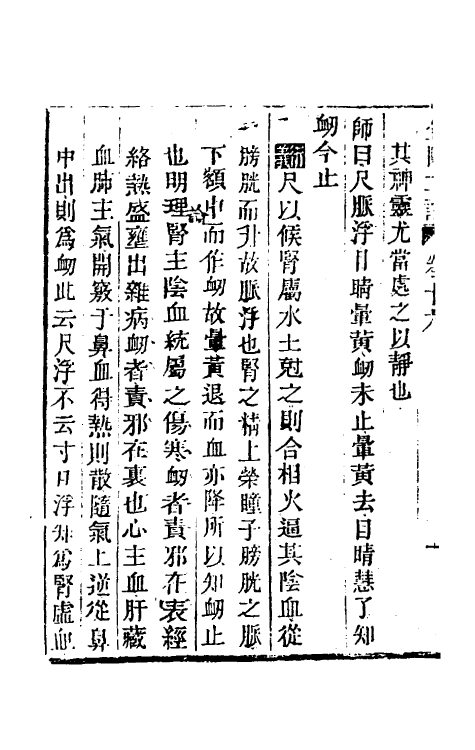 其神靈尤當處之以靜也
師曰尺脈浮目睛暈黃衂未止暈黃去目睛慧了知
衂今止
尺以候腎屬水土尅之則合相火逼其陰血從
膀胱而升故脈浮也腎之精上榮瞳子膀胱之脈
下額中而作衂故暈黃退而血亦降所以知衂止
也明理論腎主陰血統屬之傷寒衂者責邪在表經
絡熱盛壅出雜病衂者責邪在裏也心主血肝藏
血肺主氣開竅于鼻血得熱則散隨氣上逆從鼻
中出則爲衂此云尺浮不云寸口浮知爲腎虛血